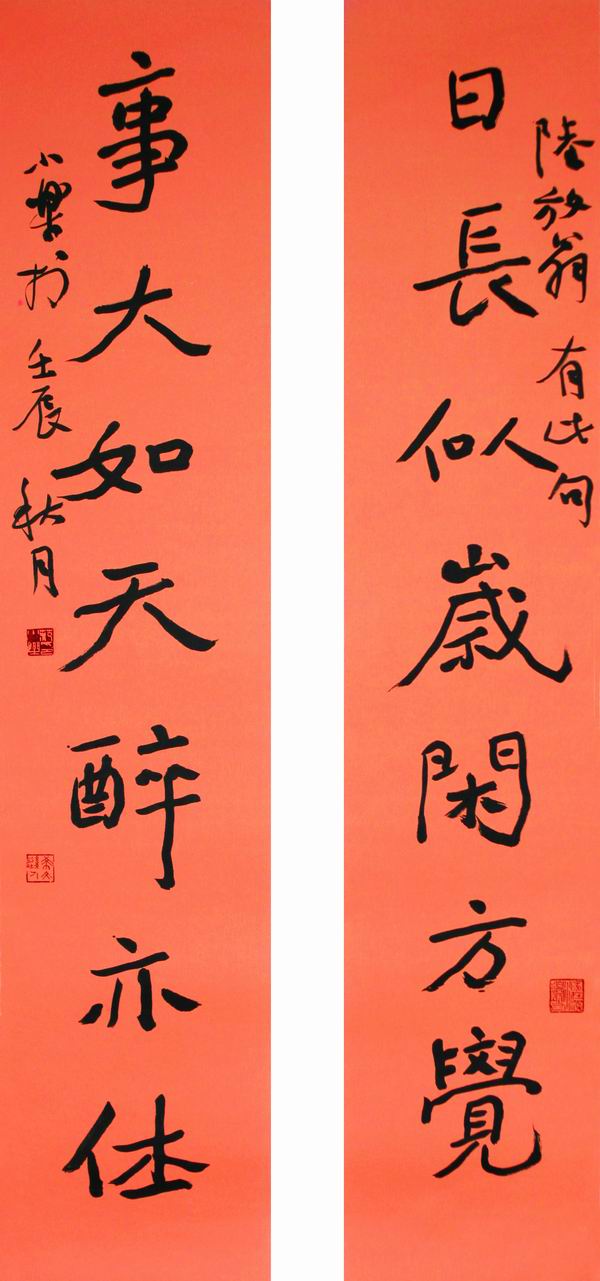 陸放翁有此句
日長似嵗閑方覺
事大如天醉亦休
小樂於壬辰秋月